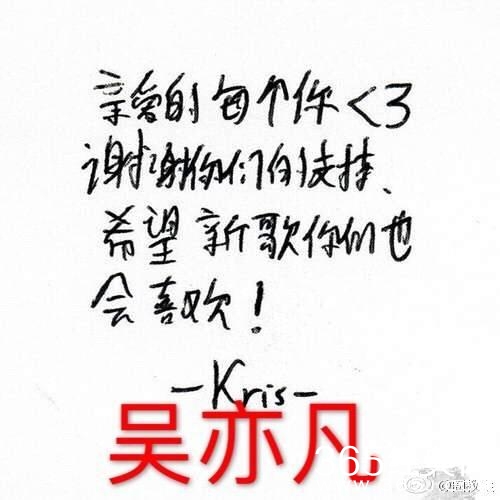 亲爱的每个你<3
谢谢你们的支持、
希望新歌你们也
会喜欢!
-Kris-
吴亦凡